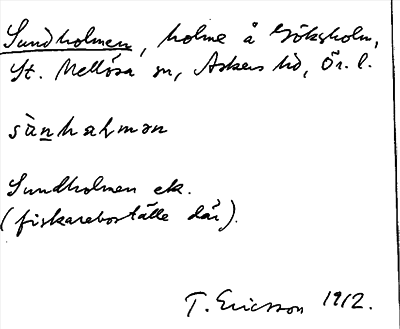 Sundholmen, holme å Göksholm,
St. Mellösa sn, Askers hd, Ör. l.
sùnhalmən
Sundholmen ek.
(fiskareboställe där).
T. Ericsson 1912.